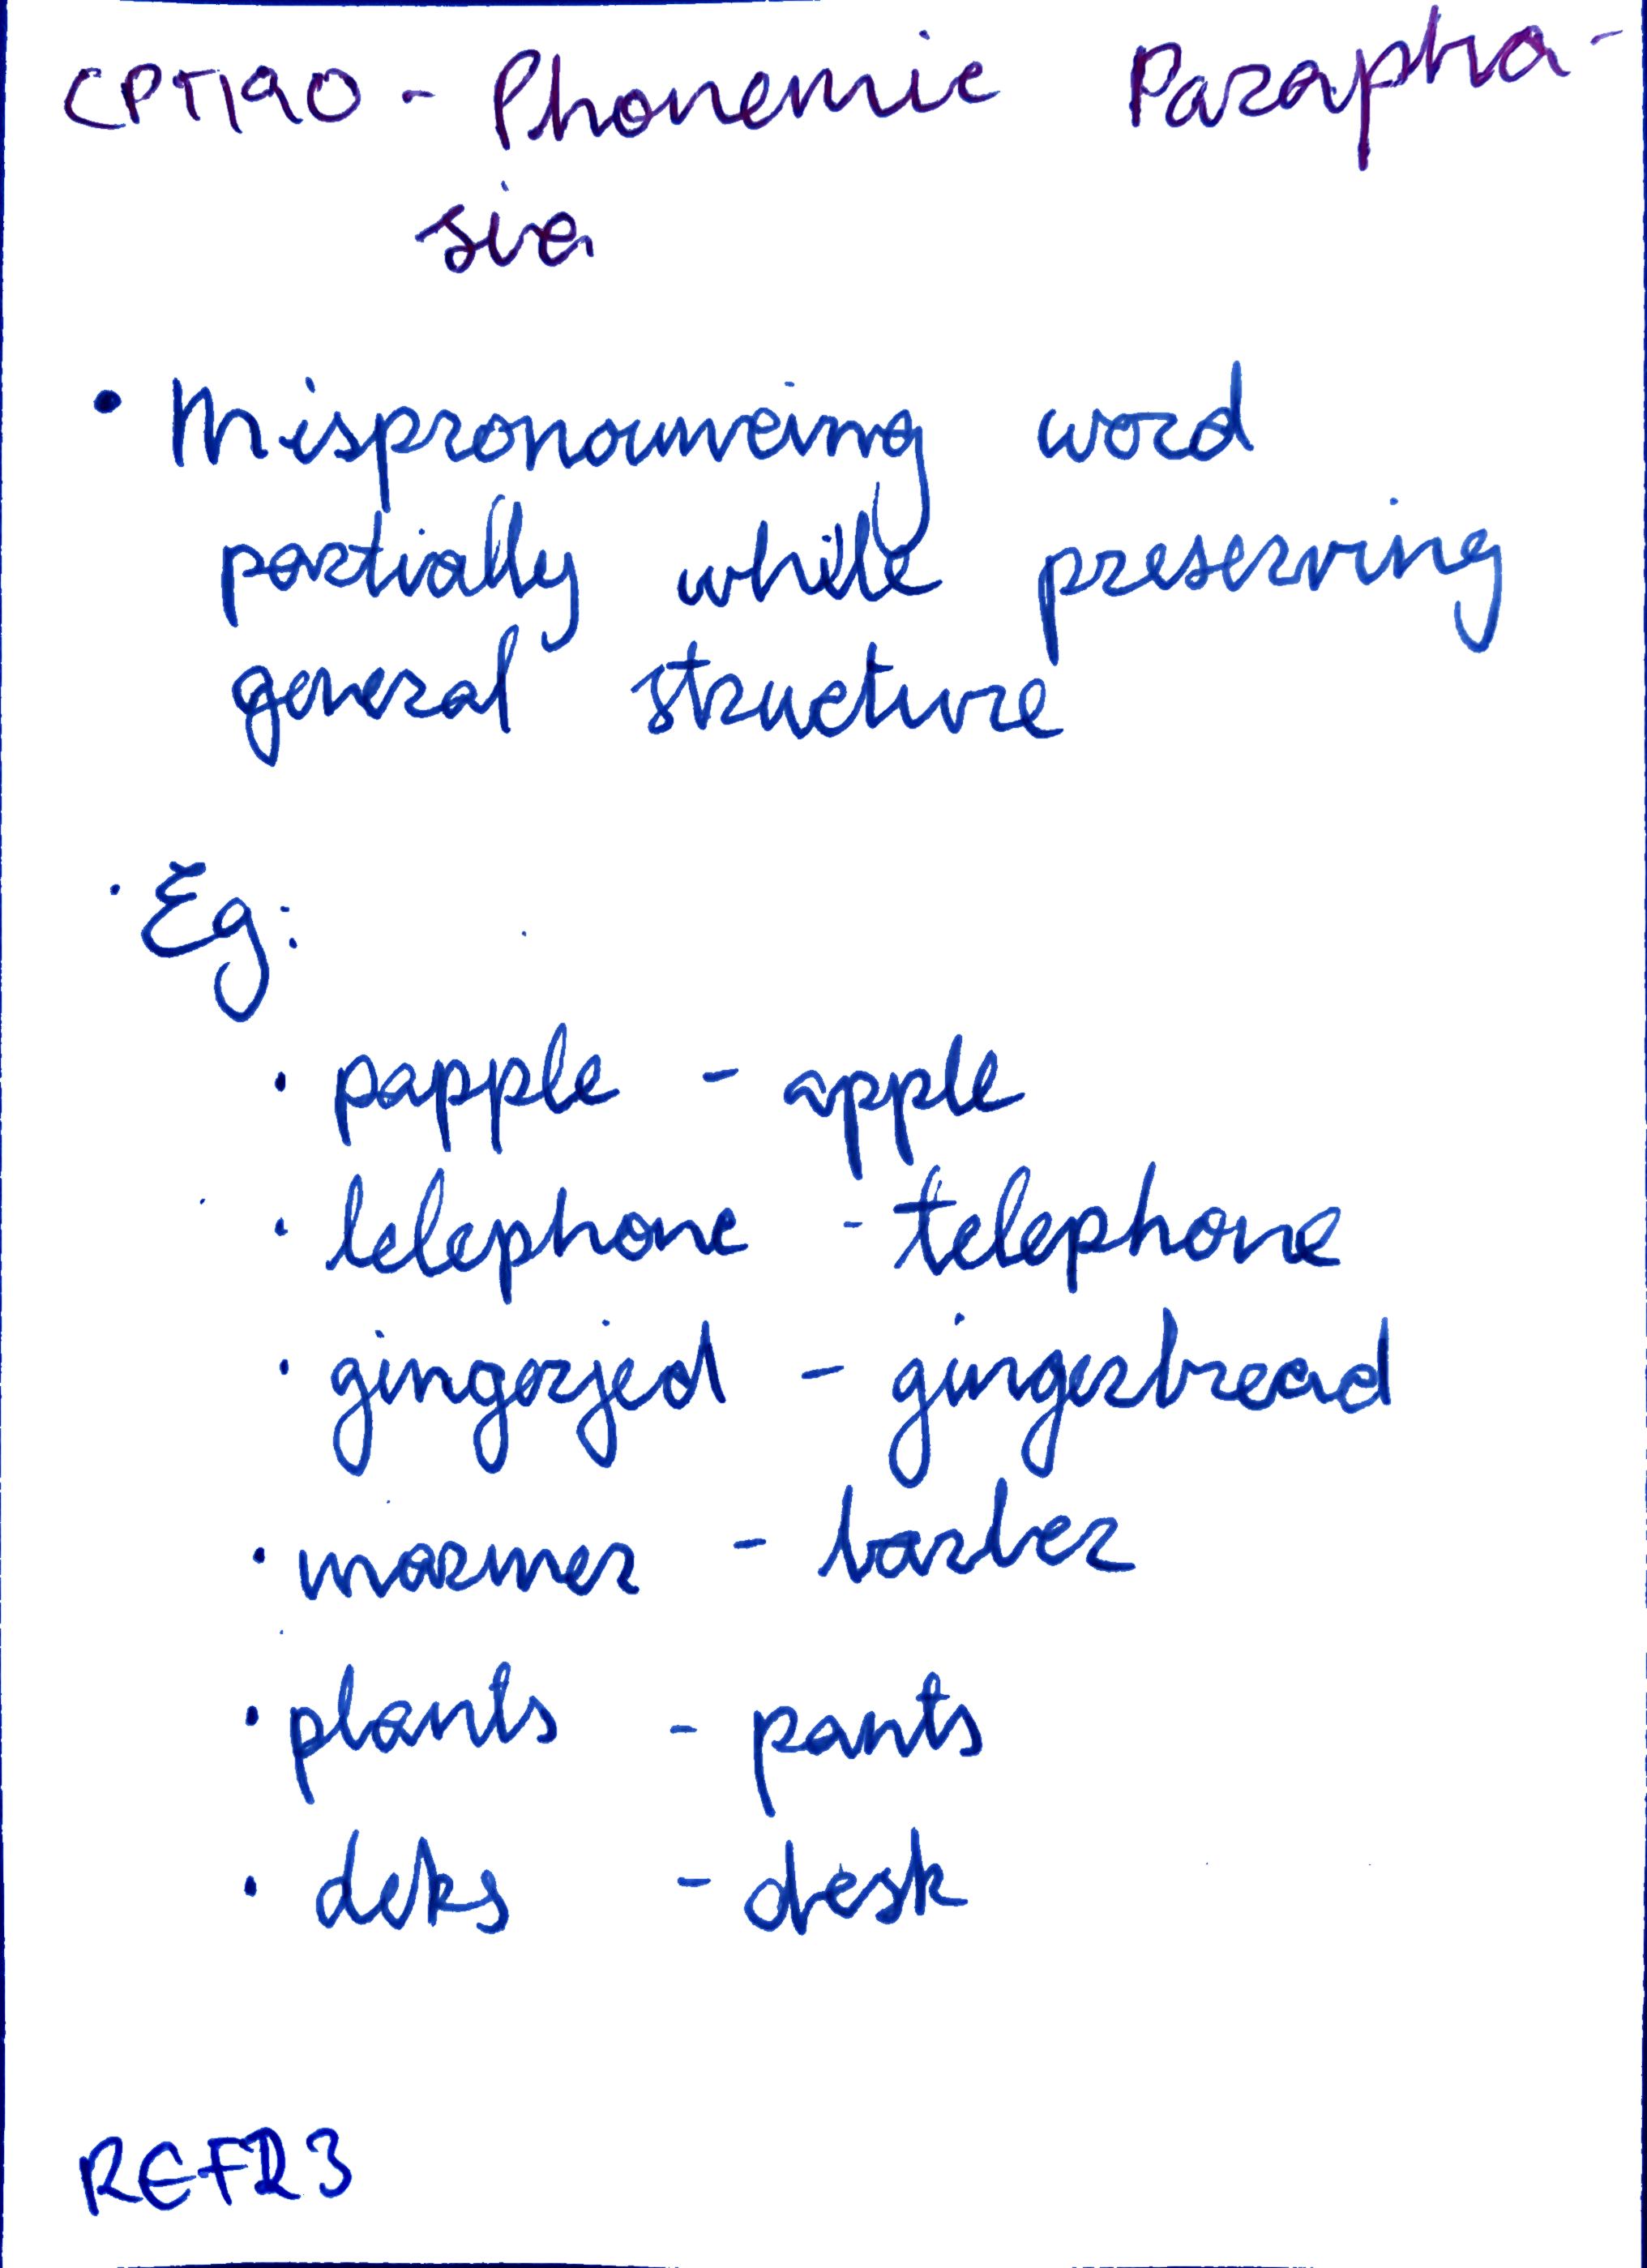 CPT190 - Phonemic Parapha-
sia
• Mispronouncing word
partially while preserving
general structure
• Eg:
• papple - apple
• lelephone - telephone
• gingerjed - gingerbread
• marmer - barber
• plants - pants
• deks - desk
REFR3